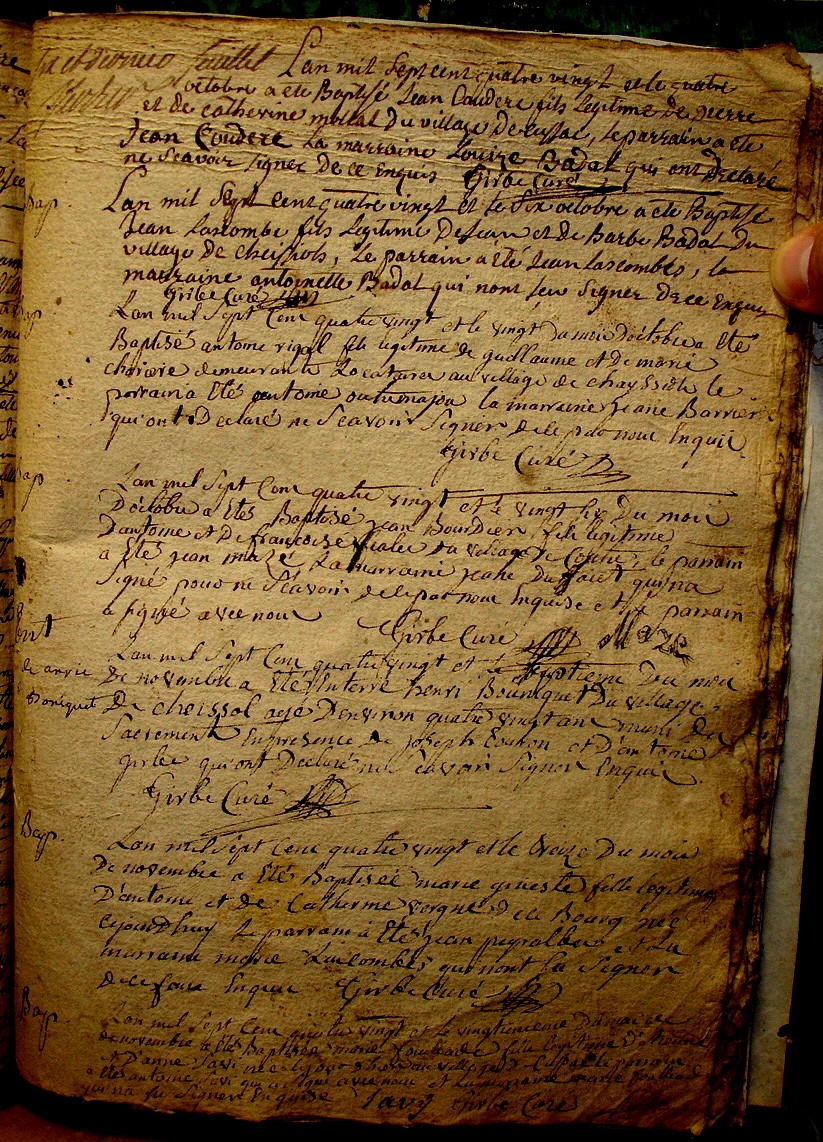 et dernier feuillet
Lan mil Sept cent quatre vingt et le quatre
octobre a ete Baptisé Jean Couderc fils Legitime de pierre
et de catherine mollat Du village De cussac, le parrain a ete
Jean Couderc La marraine Louize Badal qui ont Declaré
ne Scavoir Signer De ce Enquis Girbe Curé
Bap.
Lan mil Sept cent quatre vingt et le Six octobre a ete Baptisé
Jean Lascombe fils Legitime De Jean et de Barbe Badal Du
village De cheissiols, Le parrain a été Jean Lascombes, la
marraine antoinette Badal qui nont Seu Signer De ce Enquis
Girbe Curé
Lan mil Sept Cent quatre vingt et le vingt Du moi Doctobre a Eté
Baptisé antoine rigal fils legitime de guillaume et De marie
demeurant Locataires au village de chayssiols le
parrain a Eté antoine la marraine jeane Barriere
qui ont Declaré ne Scavoir Signer De ce par nous Enquis
Girbe Curé
Bap
Lan mil Sept Cent quatre vingt et le vingt six Du moi
Doctobre a Etés Baptisé jean Bourdier fils legitime
Dantoine et De francoise vialle du village de Contre, le parrain
a Eté jean mazé La marraine jeane qui na
Signé pour ne Scavoir de ce par nous Enquise et le parrain
a signé avec nous
Girbe Curé Maze
Ent
de anric
Boniquet
Lan mil Sept Cent quatre vingt et le Septieme Du moi
De novembre a Eté Enterré henri Bouniquet Du village
De cheissol agé Denviron quatre vingt ans muni des
Sacrements En presence De joseph Couron et Dantoine
girbe qui ont Declaré ne Scavoir Signer Enquis
Girbe Curé
Bap.
Lan mil Sept Cent quatre vingt et le treize Du moi
De novembre a Eté Baptisée marie gineste fille legitime
Dantoine et de Catherine vergne De ce Bourg née
cejourdhuy Le parrain à Etés jean peyralbe et La
marraine marie Lascombes qui nont Su Signer
de ce faire Enquis Girbe Curé
Bap.
Lan mil Sept Cent quatre vingt et le vingtunieme Du moi de
novembre a Etés Baptisée marie fille legitime Detienne
et Danne Savi née le jour le parrain
a Etés antoine Savi qui a Signé avec nous et La marraine marie
qui na Su Signer Enquise Savy Girbe Curé